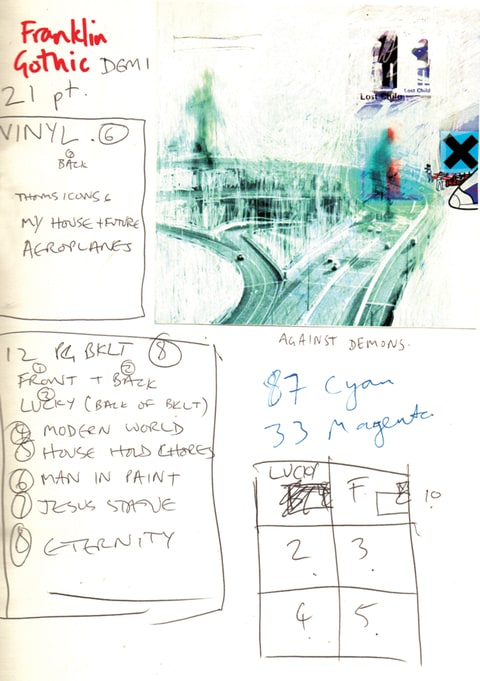 Franklin
Gothic DEMI
21 pt.
VINYL. 6
BACK
6
MY HOUSE + FUTURE
AEROPLANES
Lost Child
Lost Child
AGAINST DEMONS.
12 PG BKLT 8
1 2
FRONT + BACK
3
LUCKY (BACK OF BKLT)
4 MODERN WORLD
5 HOUSE HOLD CHORES
6 MAN IN PAINT
7 JESUS STATUE
8 ETERNITY
87 Cyan
33 Magenta
LUCKY F. 10
2 3
4 5